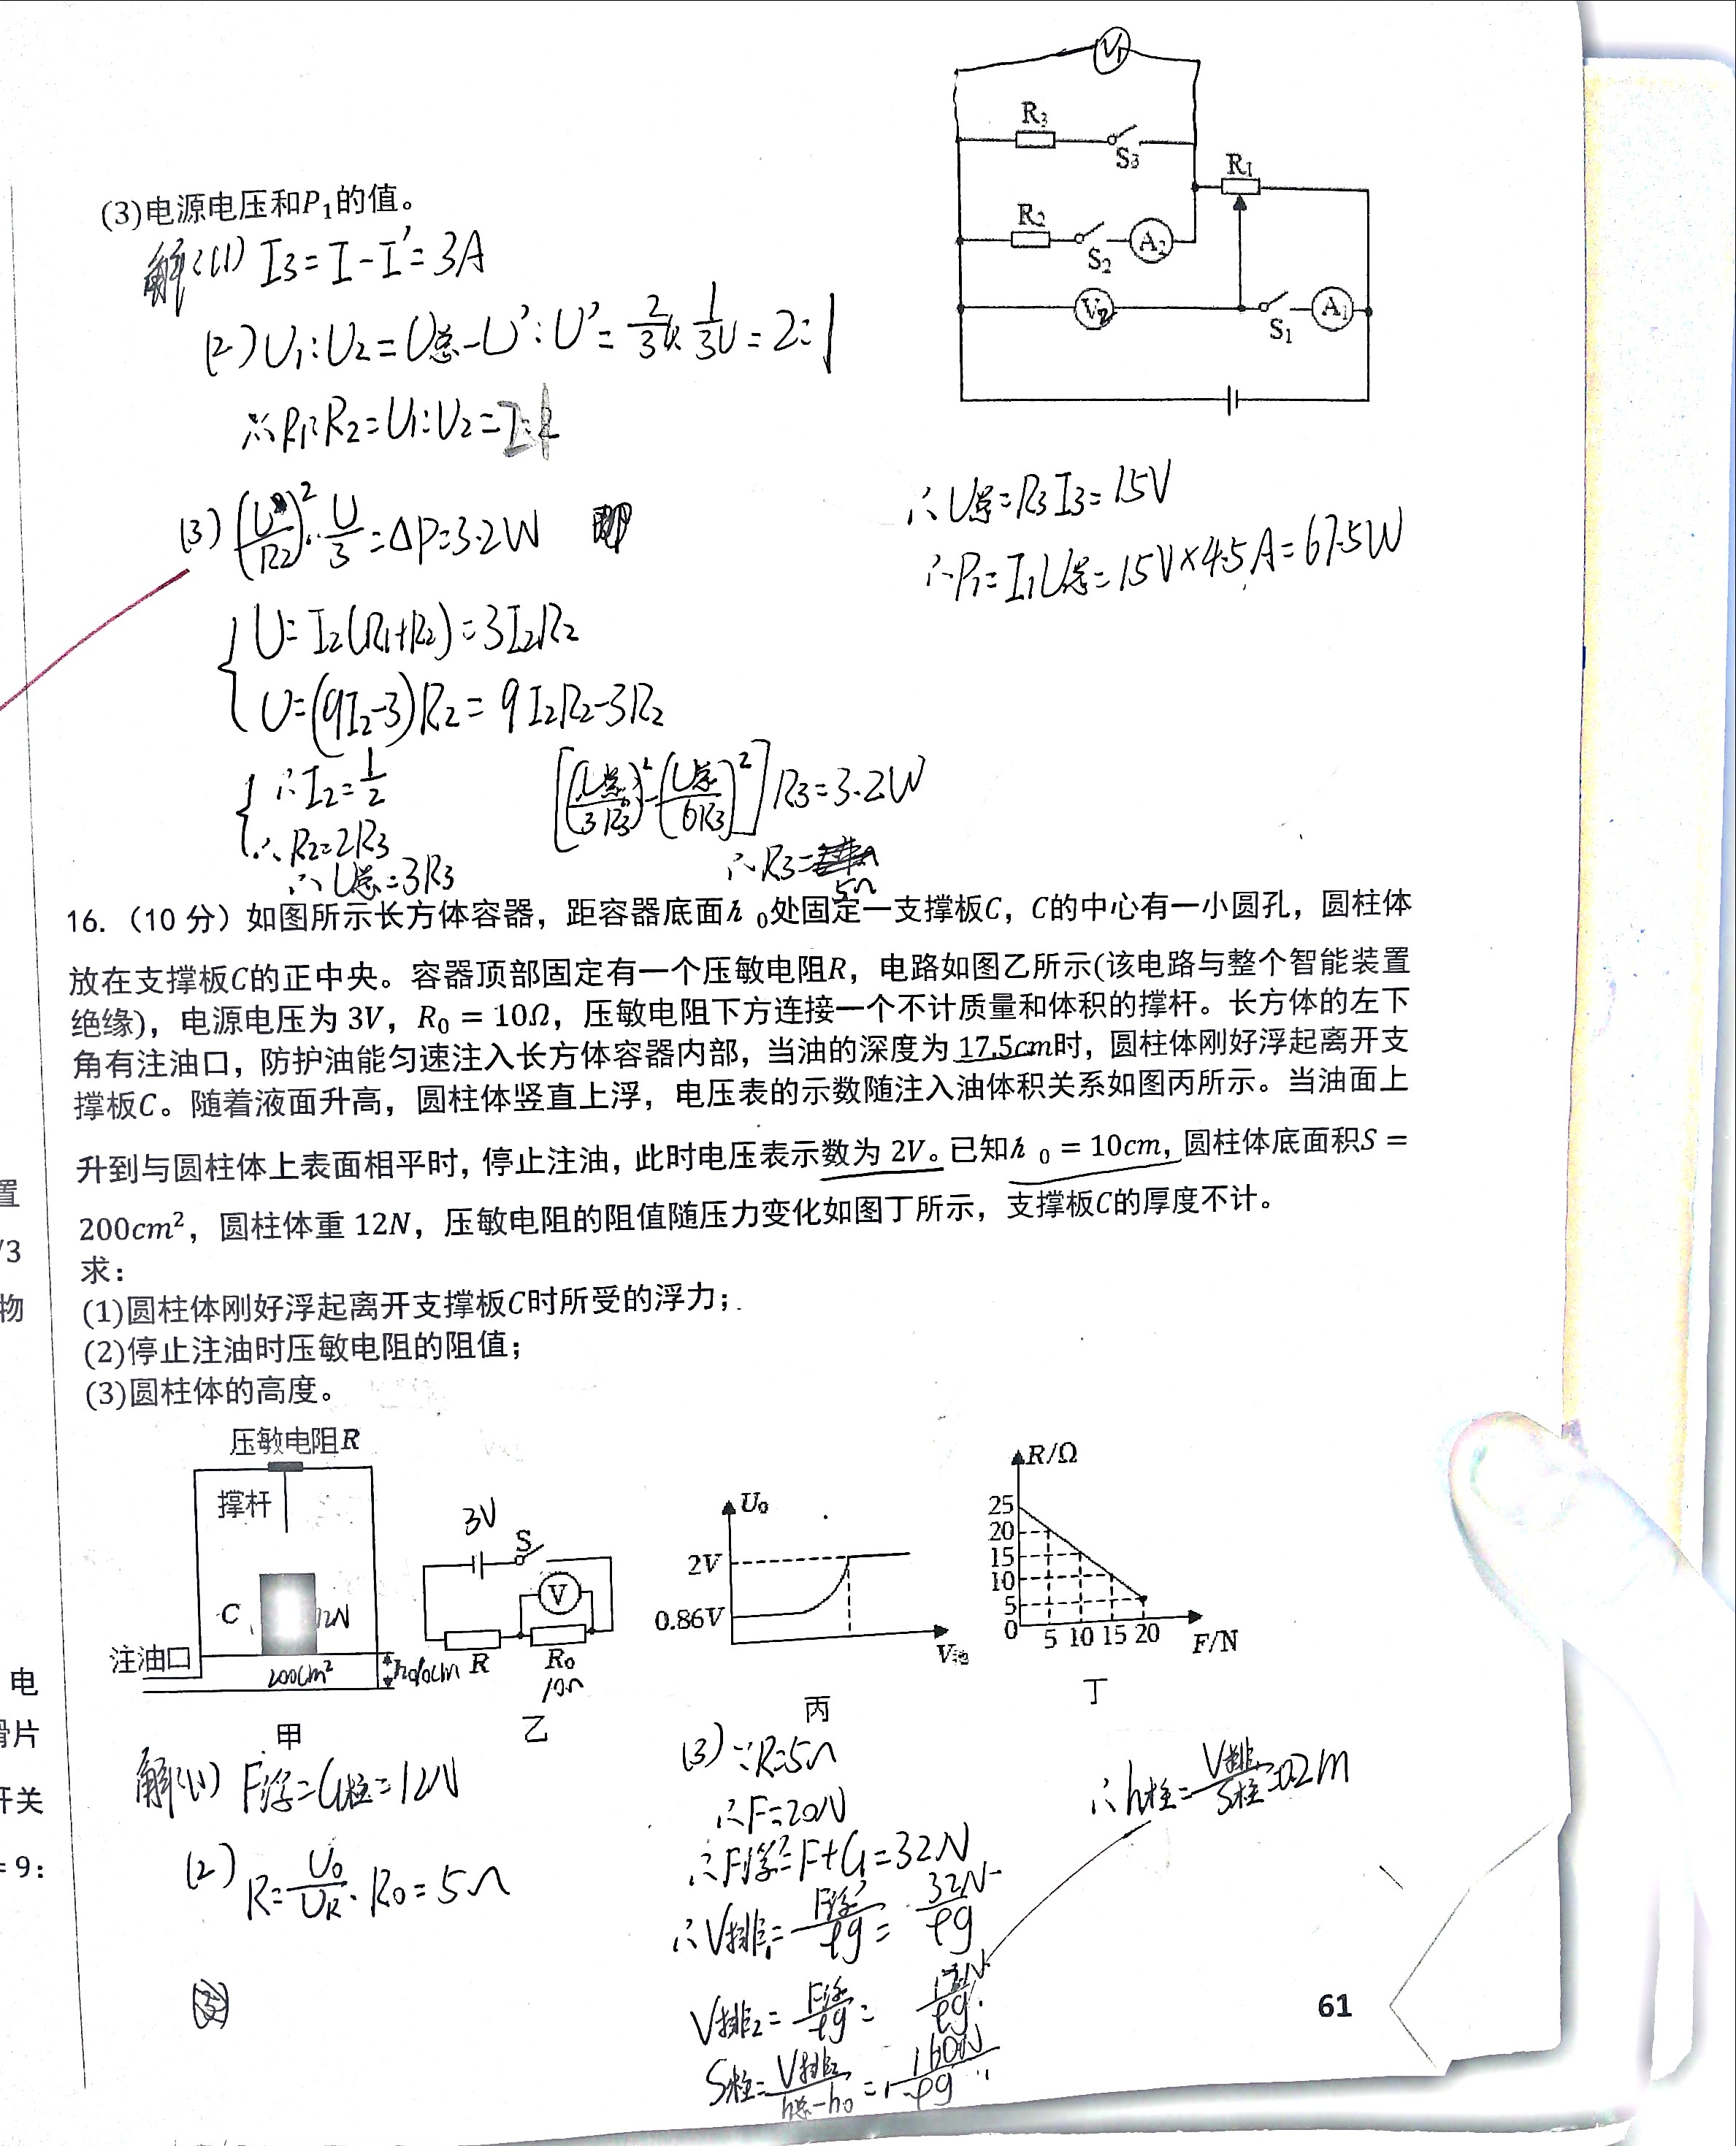 (3)电源电压和P₁的值。
解:(1) I3=I-I'=3A
(2)U₁:U₂=U总-U':U'=2/3U:1/3U=2:1
∴R₁:R₂=U₁:U₂=2:1
=ΔP=3.2W
U=I₂(R₁+R₂)=3I₂R₂
U=(9I₂-3)R₂=9I₂R₂-3R₂
∴I₂=1/2
∴R₂=2R₃
∴U总=3R₃
[(U总/3R₃)²-(U总/6R₃)²]R₃=3.2W
∴R₃=5Ω
∴U总=R₃I₃=15V
∴P₁=I₁U总=15V×4.5A=67.5W
V₁
R₃
S₃
R₁
R₂
S₂
A₂
V₂
S₁
A₁
16.（10 分）如图所示长方体容器，距容器底面h ₀处固定一支撑板C，C的中心有一小圆孔，圆柱体
放在支撑板C的正中央。容器顶部固定有一个压敏电阻R，电路如图乙所示(该电路与整个智能装置
绝缘)，电源电压为 3V，R₀ = 10Ω，压敏电阻下方连接一个不计质量和体积的撑杆。长方体的左下
角有注油口，防护油能匀速注入长方体容器内部，当油的深度为 17.5cm时，圆柱体刚好浮起离开支
撑板C。随着液面升高，圆柱体竖直上浮，电压表的示数随注入油体积关系如图丙所示。当油面上
升到与圆柱体上表面相平时，停止注油，此时电压表示数为 2V。已知h ₀ = 10cm，圆柱体底面积S =
200cm²，圆柱体重 12N，压敏电阻的阻值随压力变化如图丁所示，支撑板C的厚度不计。
求：
(1)圆柱体刚好浮起离开支撑板C时所受的浮力；
(2)停止注油时压敏电阻的阻值；
(3)圆柱体的高度。
压敏电阻R
撑杆
C
12N
注油口
200cm²
h₀10cm
甲
3V
S
V
R
R₀
10Ω
乙
U₀
2V
0.86V
V油
丙
R/Ω
25
20
15
10
5
0
5 10 15 20
F/N
丁
解:(1) F浮=G柱=12N
(2) R=U₀/UR·R₀=5Ω
(3)∵R=5Ω
∴F=20N
∴F浮'=F+G=32N
∴V排₁=F浮'/ρg=32N/ρg
V排₂=F浮/ρg=12N/ρg
S柱=V排₂/(h总-h₀)=160N/ρg
∴h柱=V排/S柱=0.2m
置
/3
物
电
滑片
开关
= 9:
61